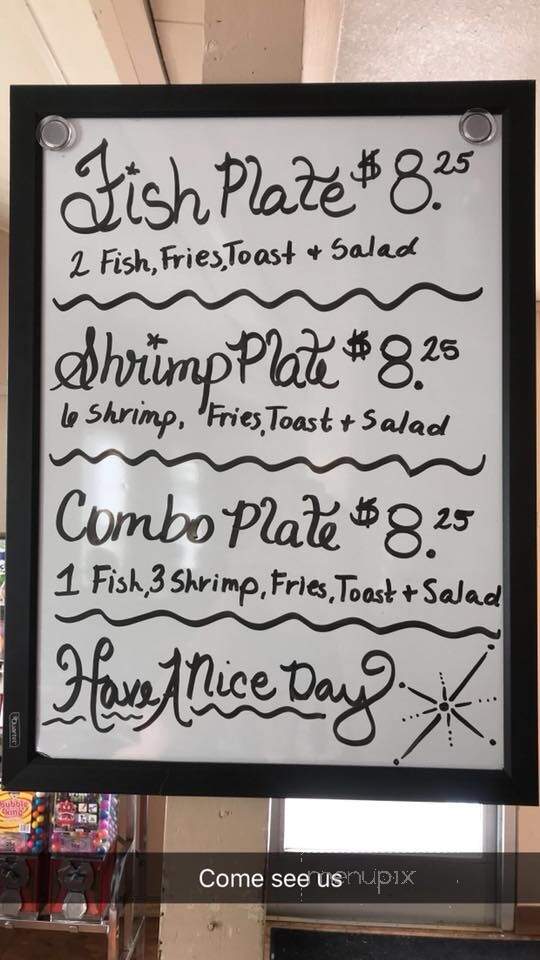 Fish Plate $8.25
2 Fish, Fries, Toast + Salad
Shrimp Plate $8.25
6 Shrimp, Fries, Toast + Salad
Combo Plate $8.25
1 Fish, 3 Shrimp, Fries, Toast + Salad
Have A Nice Day
Quartet
Bubble King
Come see us
menupix